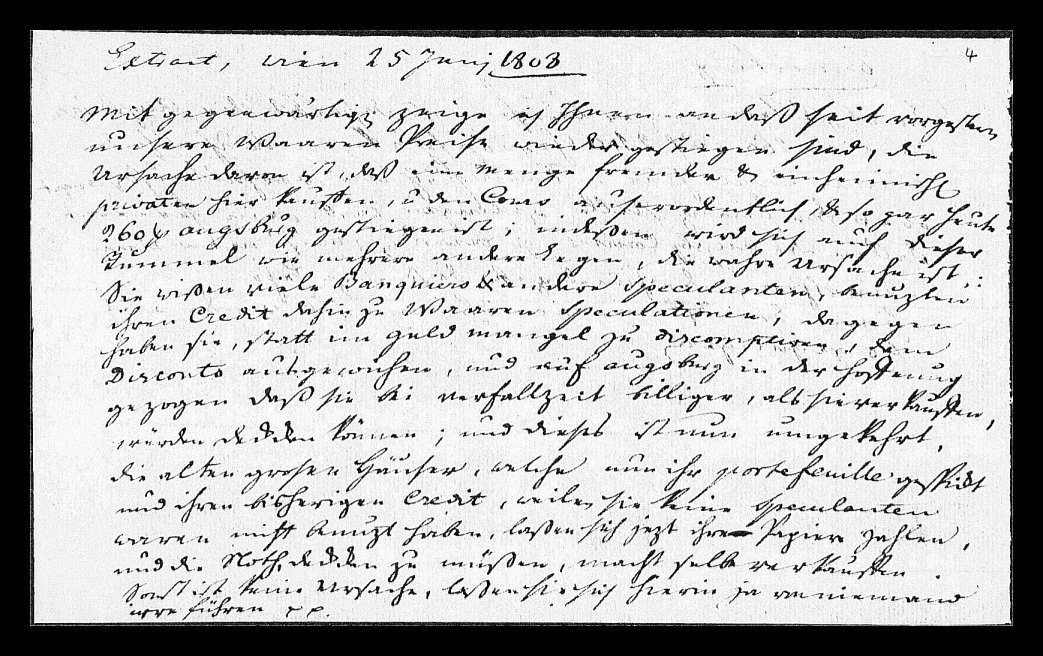 Extract, Wien 25 Junj 1808
4
Mit gegenwärtig zeige ich Ihnen an daß seit vorgestern
unsere Waaren Preise wieder gestiegen sind, die
Ursache davon ist, daß eine Menge fremder & einheimische
privaten hier kauften, u den Cours auserordentlich, & so gar heute
260 p augsburg gestiegen ist; indeßen wird sich auch dieser
Tummel wie mehrere andere legen, die wahre Ursache ist:
Sie wißen viele Banquiers & andere Speculanten, benuzten
ihren Credit dahin zu Waaren Speculationen, dagegen
haben sie, statt im geld mangel zu discomptiren, dem
Disconto ausgewichen, und auf augsburg in der Hoffnung
gezogen daß sie bei verfallzeit billiger, als sie verkauften,
würden dekken können; und dieses ist nun umgekehrt,
die alten grosen Häuser, welche nun ihr portefeuille gespickt
und ihren bisherigen Credit, weilen sie keine Speculanten
waren nicht benuzt haben, laßen sich jezt ihre Papiere zahlen,
und die Noth, dekken zu müßen, macht selbe verkauffen.
Sonst ist keine Ursache, laßen sie sich hierin ja von niemand
irre führen pp.